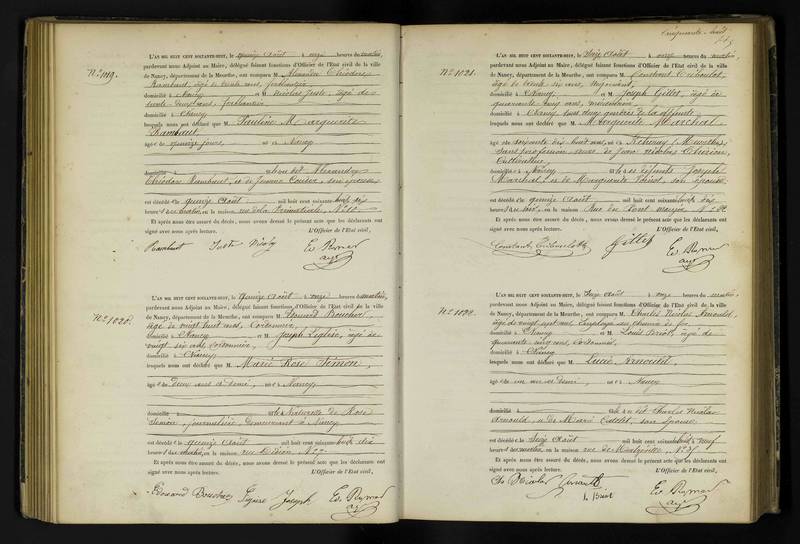 N.° 1019.
L'AN MIL HUIT CENT SOIXANTE-HUIT, le quinze Août à onze heures du matin,
pardevant nous Adjoint au Maire, délégué faisant fonctions d'Officier de l'Etat civil de la ville
de Nancy, département de la Meurthe, ont comparu M. Alexandre Théodore
Rambaut, âgé de trente ans, ferblantier
domicilié à Nancy et M. Nicolas Juste, âgé de
ans, ferblantier
domicilié à Nancy
lesquels nous ont déclaré que M. Pauline Marguerite
Rambaut,
âgée de quinze jours, née à Nancy
domicilié à fille de dit Alexandre
Théodore Rambaut, et de Jeanne son épouse
est décédée le quinze Août mil huit cent soixante-huit à six
heures du matin, en la maison, rue de la Primatiale, N.°
Et après nous être assuré du décès, nous avons dressé le présent acte que les déclarants ont
signé avec nous après lecture. L'Officier de l'Etat civil,
Rambaut Juste Nicolas
N.° 1020.
L'AN MIL HUIT CENT SOIXANTE-HUIT, le quinze Août à onze heures du matin,
pardevant nous Adjoint au Maire, délégué faisant fonctions d'Officier de l'Etat civil de la ville
de Nancy, département de la Meurthe, ont comparu M. Edouard Bouchez,
âgé de vingt huit ans, cordonnier,
domicilié à Nancy et M. Joseph âgé de
vingt six ans, cordonnier,
domicilié à Nancy
lesquels nous ont déclaré que M. Marie Rose Simon,
âgée de deux ans et demi, née à Nancy
domicilié à fille naturelle de Rose
Simon, journalière, demeurant à Nancy
est décédée le quinze Août mil huit cent soixante-huit à dix
heures du matin, en la maison, rue N.°
Et après nous être assuré du décès, nous avons dressé le présent acte que les déclarants ont
signé avec nous après lecture. L'Officier de l'Etat civil,
Edouard Bouchez Joseph
N.° 1021.
L'AN MIL HUIT CENT SOIXANTE-HUIT, le Seize Août à onze heures du matin,
pardevant nous Adjoint au Maire, délégué faisant fonctions d'Officier de l'Etat civil de la ville
de Nancy, département de la Meurthe, ont comparu M. Constant
âgé de trente six ans, négociant
domicilié à Nancy et M. Joseph Gillet, âgé de
quarante cinq ans,
domicilié à Nancy, tous deux gendres de la défunte
lesquels nous ont déclaré que M. Marguerite Marchal
âgée de soixante dix huit ans, née à (Meurthe)
sans profession, veuve de Jean Nicolas
Cultivateur,
domiciliée à Nancy fille des défunts Joseph
Marchal et de Marguerite son épouse
est décédée le quinze Août mil huit cent soixante-huit à six
heures du soir, en la maison, Rue du
Et après nous être assuré du décès, nous avons dressé le présent acte que les déclarants ont
signé avec nous après lecture. L'Officier de l'Etat civil,
Constant Gillet
L'AN MIL HUIT CENT SOIXANTE-HUIT, le Seize Août à onze heures du matin,
pardevant nous Adjoint au Maire, délégué faisant fonctions d'Officier de l'Etat civil de la ville
de Nancy, département de la Meurthe, ont comparu M. Charles Nicolas Arnould,
âgé de vingt sept ans, Employé au chemin de fer
domicilié à Nancy et M. Louis Briot, âgé de
quarante cinq ans, cordonnier
domicilié à Nancy
lesquels nous ont déclaré que M. Lucie Arnould
âgée de un an et demi, née à Nancy
domicilié à fille de dit Charles Nicolas
Arnould, et de Marie son épouse
est décédée le Seize Août mil huit cent soixante-huit à neuf
heures du matin, en la maison, rue de
Et après nous être assuré du décès, nous avons dressé le présent acte que les déclarants ont
signé avec nous après lecture. L'Officier de l'Etat civil,
Ch. Nicolas Arnould
L. Briot